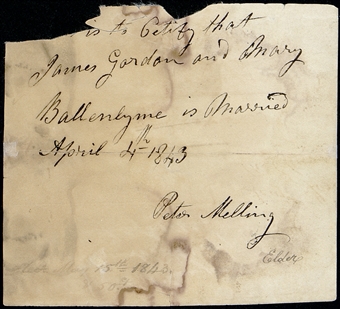 is to Cetify that
James Gordon and Mary
Ballenlyme is Married
April 4th 1843
Peter Melling
Elder
15th 1843.